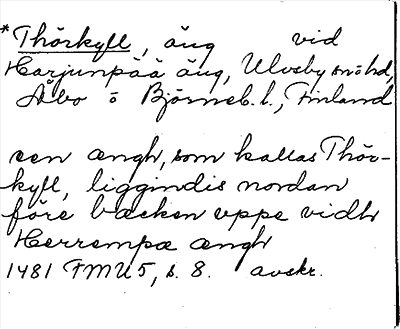 *Thörkyll, äng vid
Harjunpää äng, Ulvsby snöhd,
Åbo o Björneb. l., Finland
een ængh, som kallas Thör-
kyll, liggindis nordan
före bæcken uppe vidh
Herrempæ ængh
1481 FMU 5, s. 8. avskr.